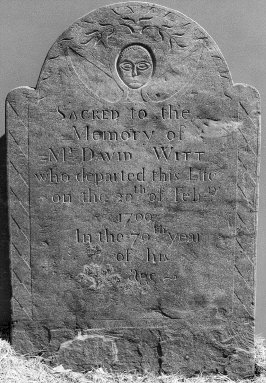 Sacred to the
Memory of
Mr David Witt
who departed this Life
on the 20th of Feby
1700
In the 79th year
of his
Age